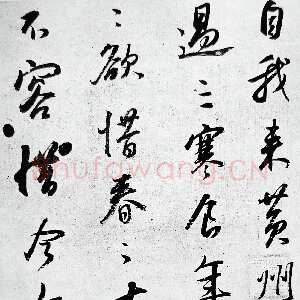 自我来黄州
過三寒食年
〻欲惜春〻
不容惜今
shufawang.CN